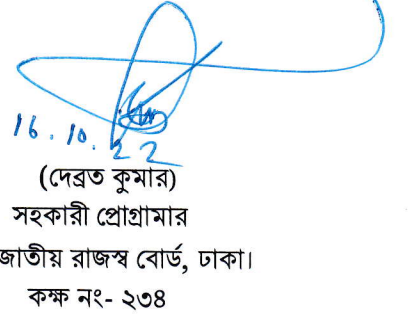 16.10.22
(দেব্রত কুমার)
সহকারী প্রোগ্রামার
জাতীয় রাজস্ব বোর্ড, ঢাকা।
কক্ষ নং- ২৩৪